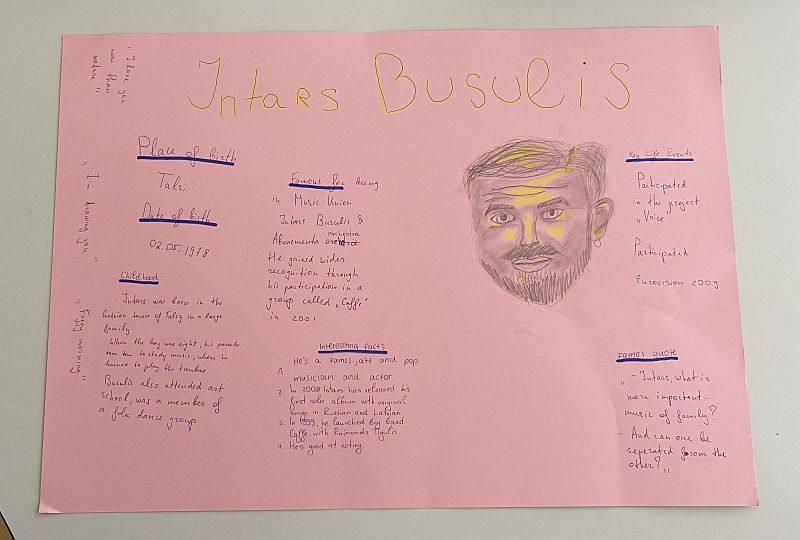 Intars Busulis
" I love you
more than
nature "
" Im drawing you "
" Foggy morning "
Place of birth
Talsi
Date of birth
02.05.1978
Childhood:
Intars was born in the
town of Talsi in a large
family.
When the boy was eight, his parents
him to study music, where he
learned to play the trombon
Busulis also attended art
school, was a member of
a folk dance group
Famous for being
in Music Union
Intars Busulis &
Abonementa orchestra
He gained wider
recognition through
his participation in a
group called „Caffe"
in 2001.
Interesting facts
1. He's a famos jazz and pop
musician and actor.
2. In 2008 Intars has released his
first solo album with original
songs in Russian and Latvian.
3. In 1999, he launched Big Band
Caffe with Raimonds Tigulis.
4. He's good at acting.
Key Life Events
Participated
in the project
„ Voice "
Participated
Eurovision 2009
Famos quote
„ - Intars, what is
more important -
music of family?
- And can one be
seperated from the
other? "